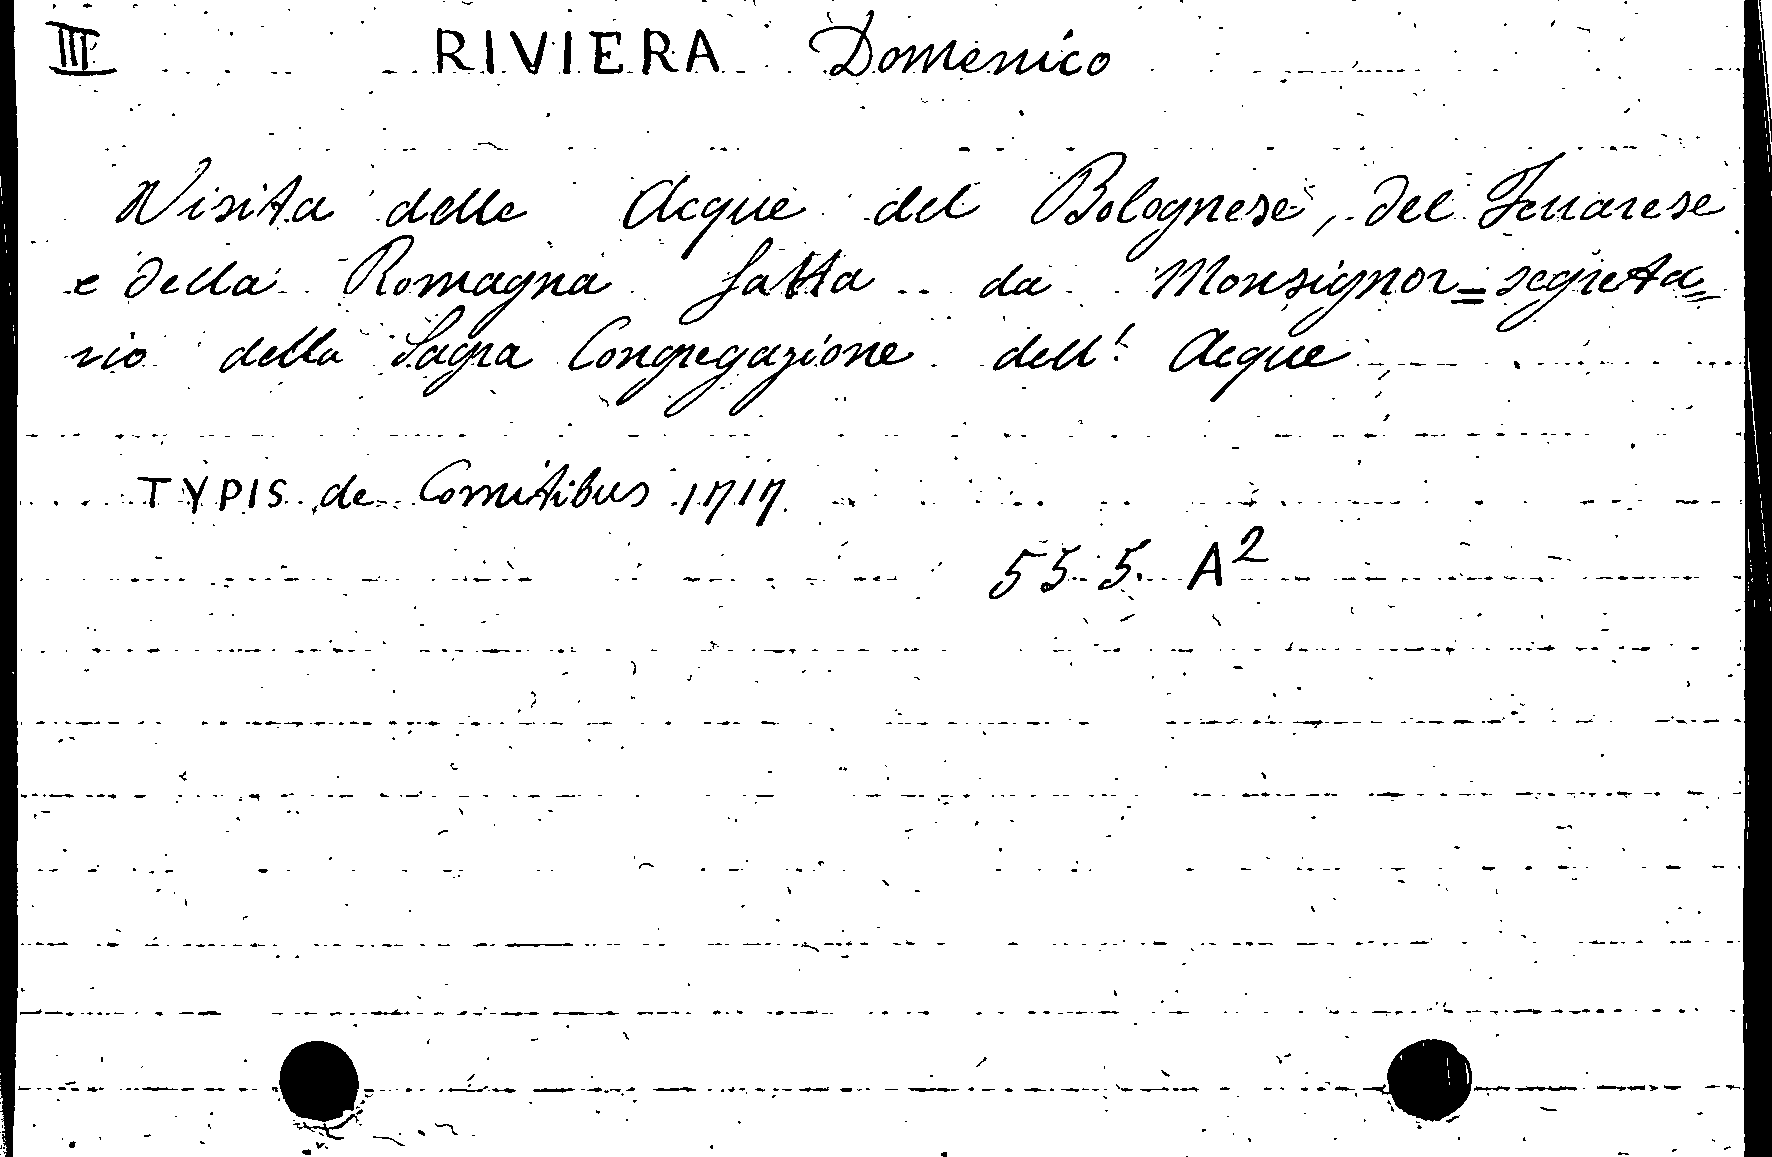 III RIVIERA Domenico
Visita delle Acque del Bolognese, del Ferrarese
e della Romagna fatta da Monsignor = segreta=
rio della Sagra Congregazione dell' Acque
TYPIS de Comitibus 1717
55.5. A²